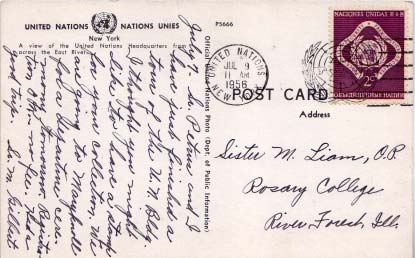 UNITED NATIONS NATIONS UNIES
New York
A view of the United Nations Headquarters from
across the East River.
P5666
July 9. Sr. and I
have just finished a
tour of the U.N. Bldg.
I thought you might
like to have a stamp
for your collection. We
are going to Maryknoll
for Departure cere-
mony tomorrow.
Had a
good trip. Sr. M. Gilbert
Official United Nations Photo (Dept. of Public Information)
UNITED NATIONS
JUL 9
11 AM
1956
NEW
NACIONES UNIDAS
2c
ОБЪЕДИНЕННЫЕ НАЦИИ
POST CARD
Address
Sister M. Liam, O.P.
Rosary College
River Forest, Ill.